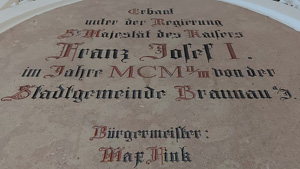 Erbaut
unter der Regierung
Sr Majestät des Kaisers
Franz Josef I.
im Jahre MCM II/III von der
Stadtgemeinde Braunau a/I.
Bürgermeister:
Max Fink